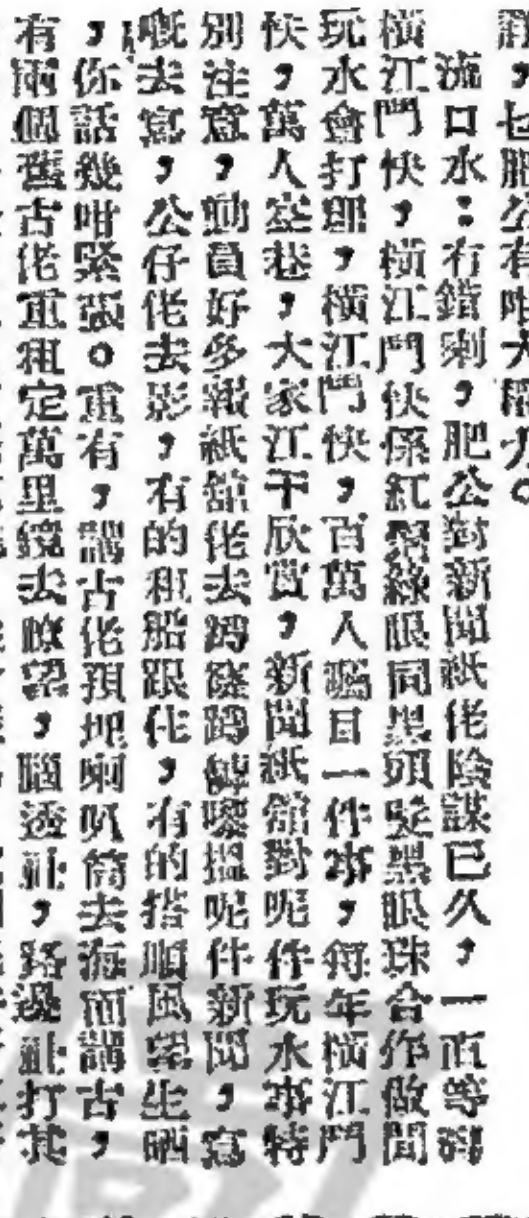 乜肥公有咁大福力。
流口水:冇錯喇,肥公對新聞紙佬陰謀已久,一直等到
橫江鬥快,橫江鬥快係紅鬚綠眼同黑頭髮黑眼珠合作做間
玩水會打理,橫江鬥快,百萬人矚目一件事,每年橫江鬥
快,萬人空巷,大家江干欣賞,新聞紙館對呢件玩水事特
別注意,動員好多報紙館佬去踎躉踎竇嚟搵呢件新聞,寫
嘅去寫,公仔佬去影,有的租船跟住,有的搭順風架生晒
,你話幾咁緊張。重有,講古佬預埋喇叭筒去海面講古,
有兩個舊古佬重租定萬里鏡去瞭望,腦透社,路邊社打其